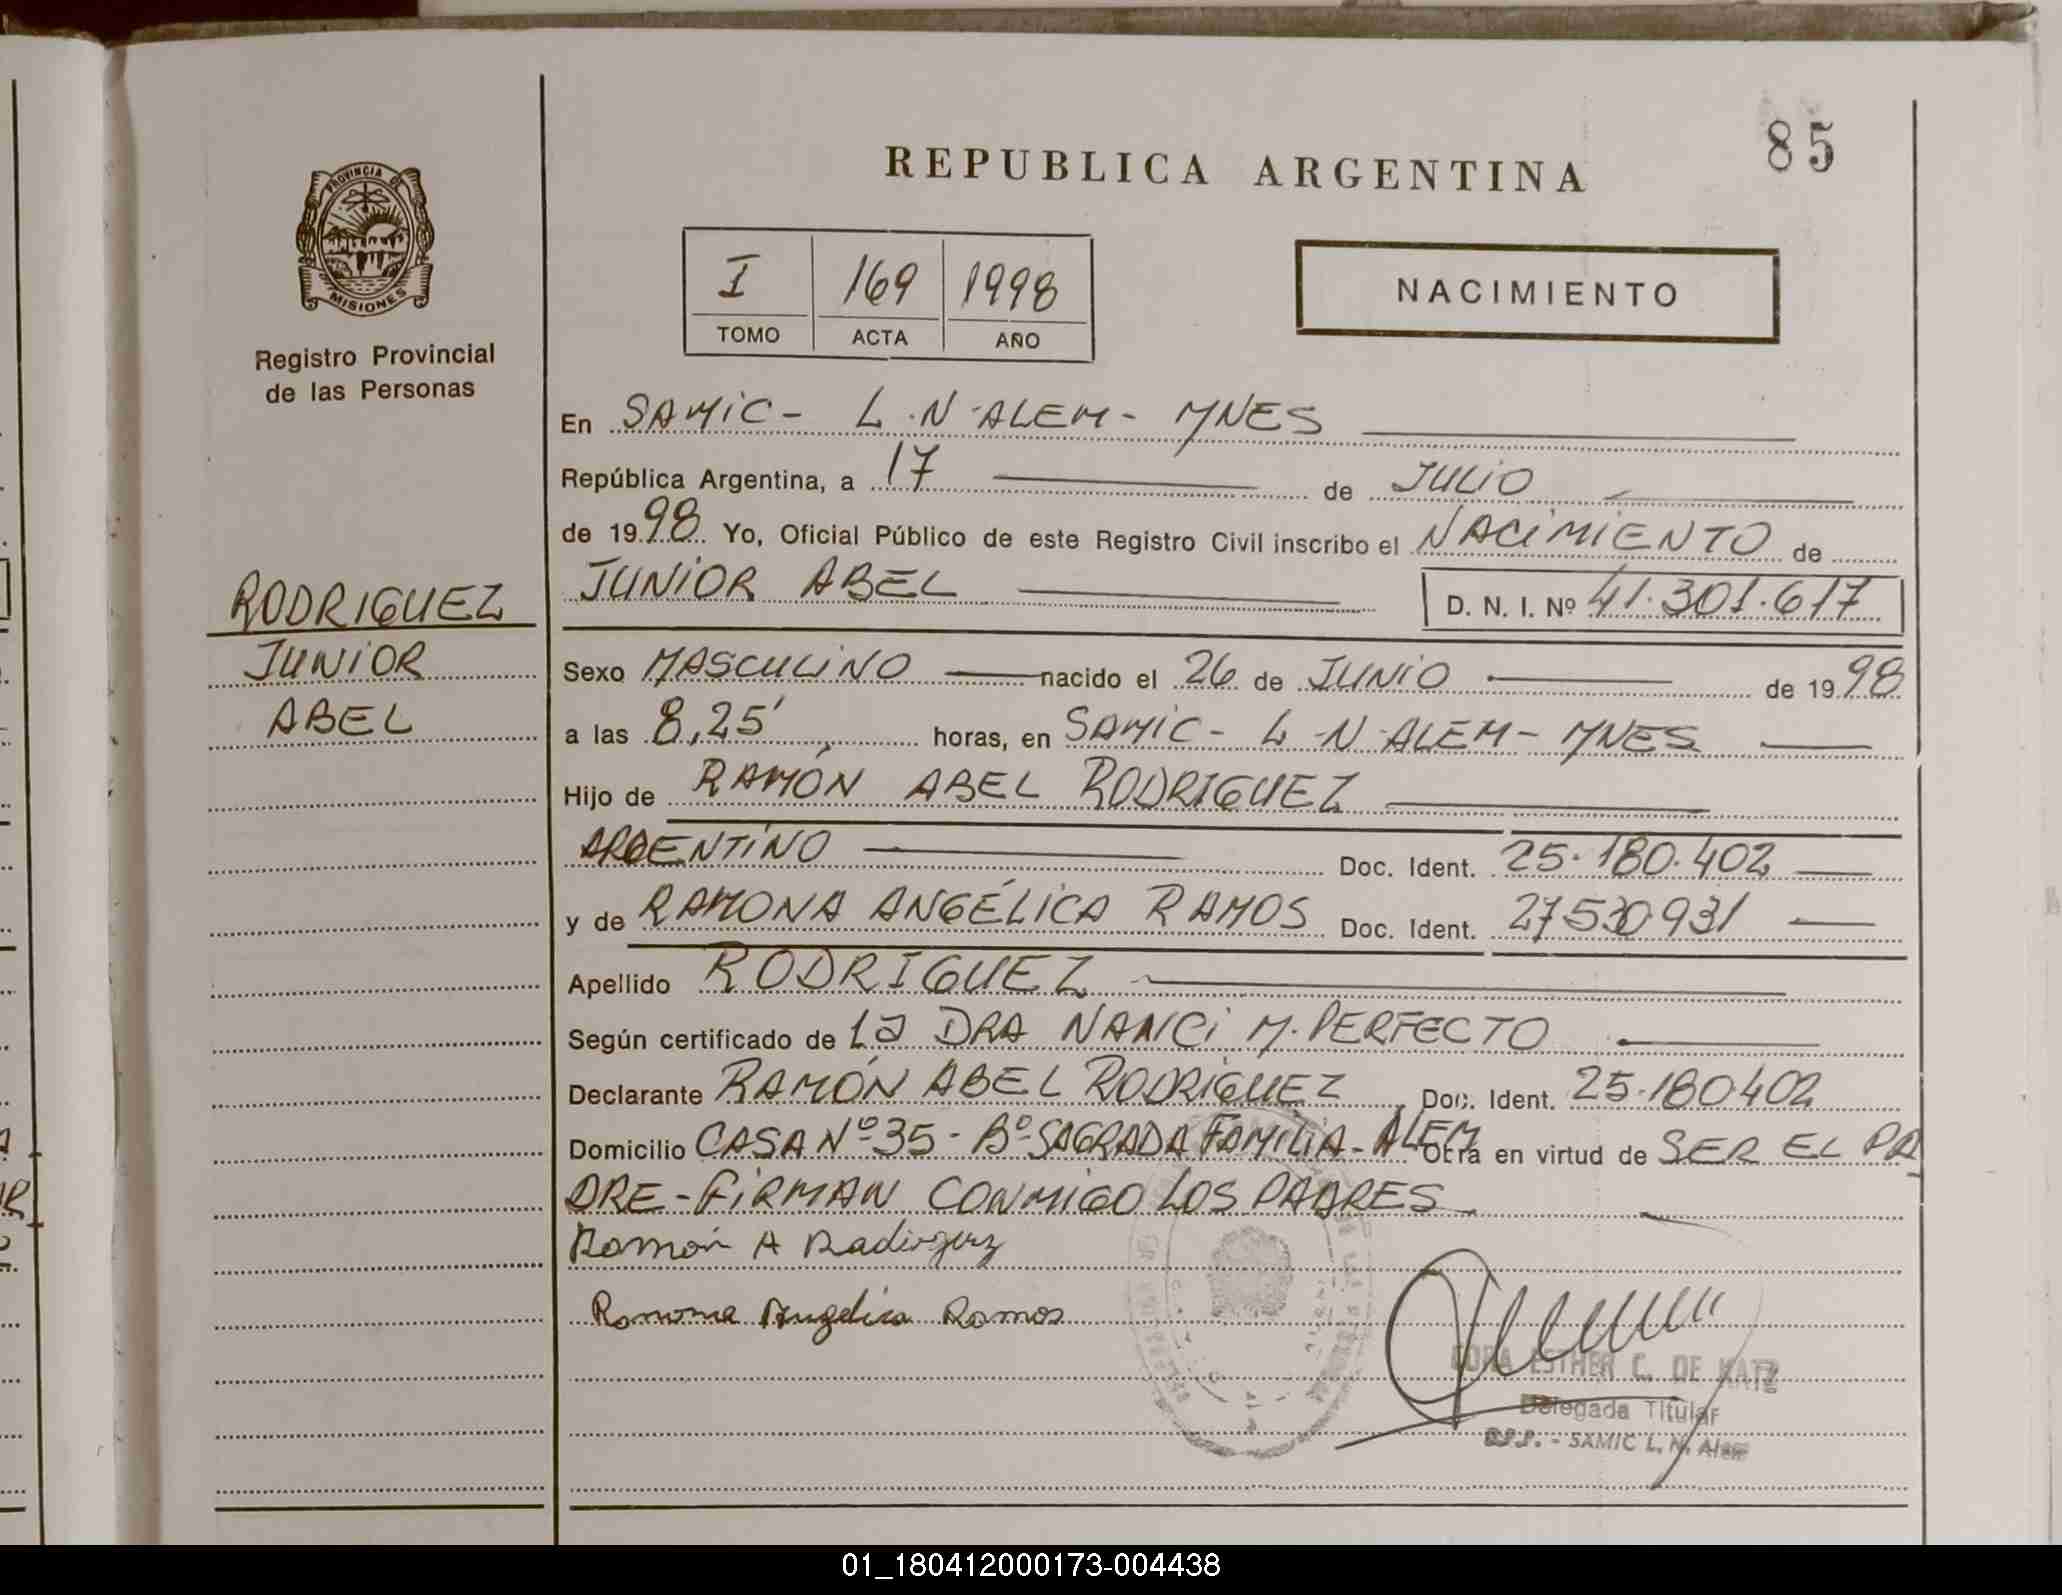 85
REPUBLICA ARGENTINA
PROVINCIA DE
MISIONES
Registro Provincial
de las Personas
I 169 1998
TOMO ACTA AÑO
NACIMIENTO
RODRIGUEZ
JUNIOR
ABEL
En SAMIC - L.N. ALEM - MNES
República Argentina, a 17 de JULIO
de 1998 Yo, Oficial Público de este Registro Civil inscribo el NACIMIENTO de
JUNIOR ABEL D. N. I. Nº 41.301.617
Sexo MASCULINO nacido el 26 de JUNIO de 1998
a las 8,25' horas, en SAMIC - L.N. ALEM - MNES
Hijo de RAMÓN ABEL RODRIGUEZ
ARGENTINO Doc. Ident. 25.180.402
y de RAMONA ANGÉLICA RAMOS Doc. Ident. 27530931
Apellido RODRIGUEZ
Según certificado de La DRA NANCI M. PERFECTO
Declarante RAMÓN ABEL RODRIGUEZ Doc. Ident. 25.180402
Domicilio CASA Nº 35 - Bº SAGRADA FAMILIA - ALEM Otra en virtud de SER EL PA
DRE - FIRMAN CONMIGO LOS PADRES
Ramón A Radirguez
Ramona Angelica Ramos
ESTHER C. DE KATZ
Delegada Titular
SAMIC L. N. Alem
01_180412000173-004438